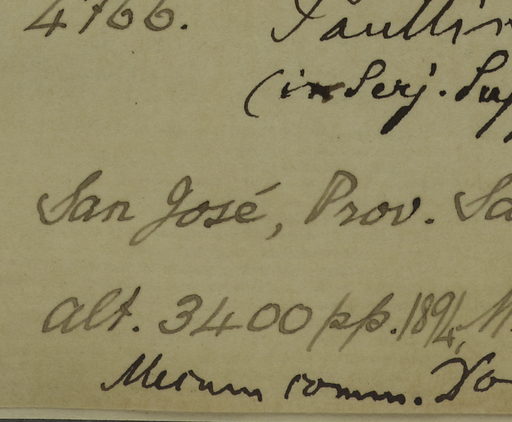 4766. Paullin
(in Serj. Sup
San José, Prov. Sa
alt. 3400 pp. 1894, M
Mecum comm. Do